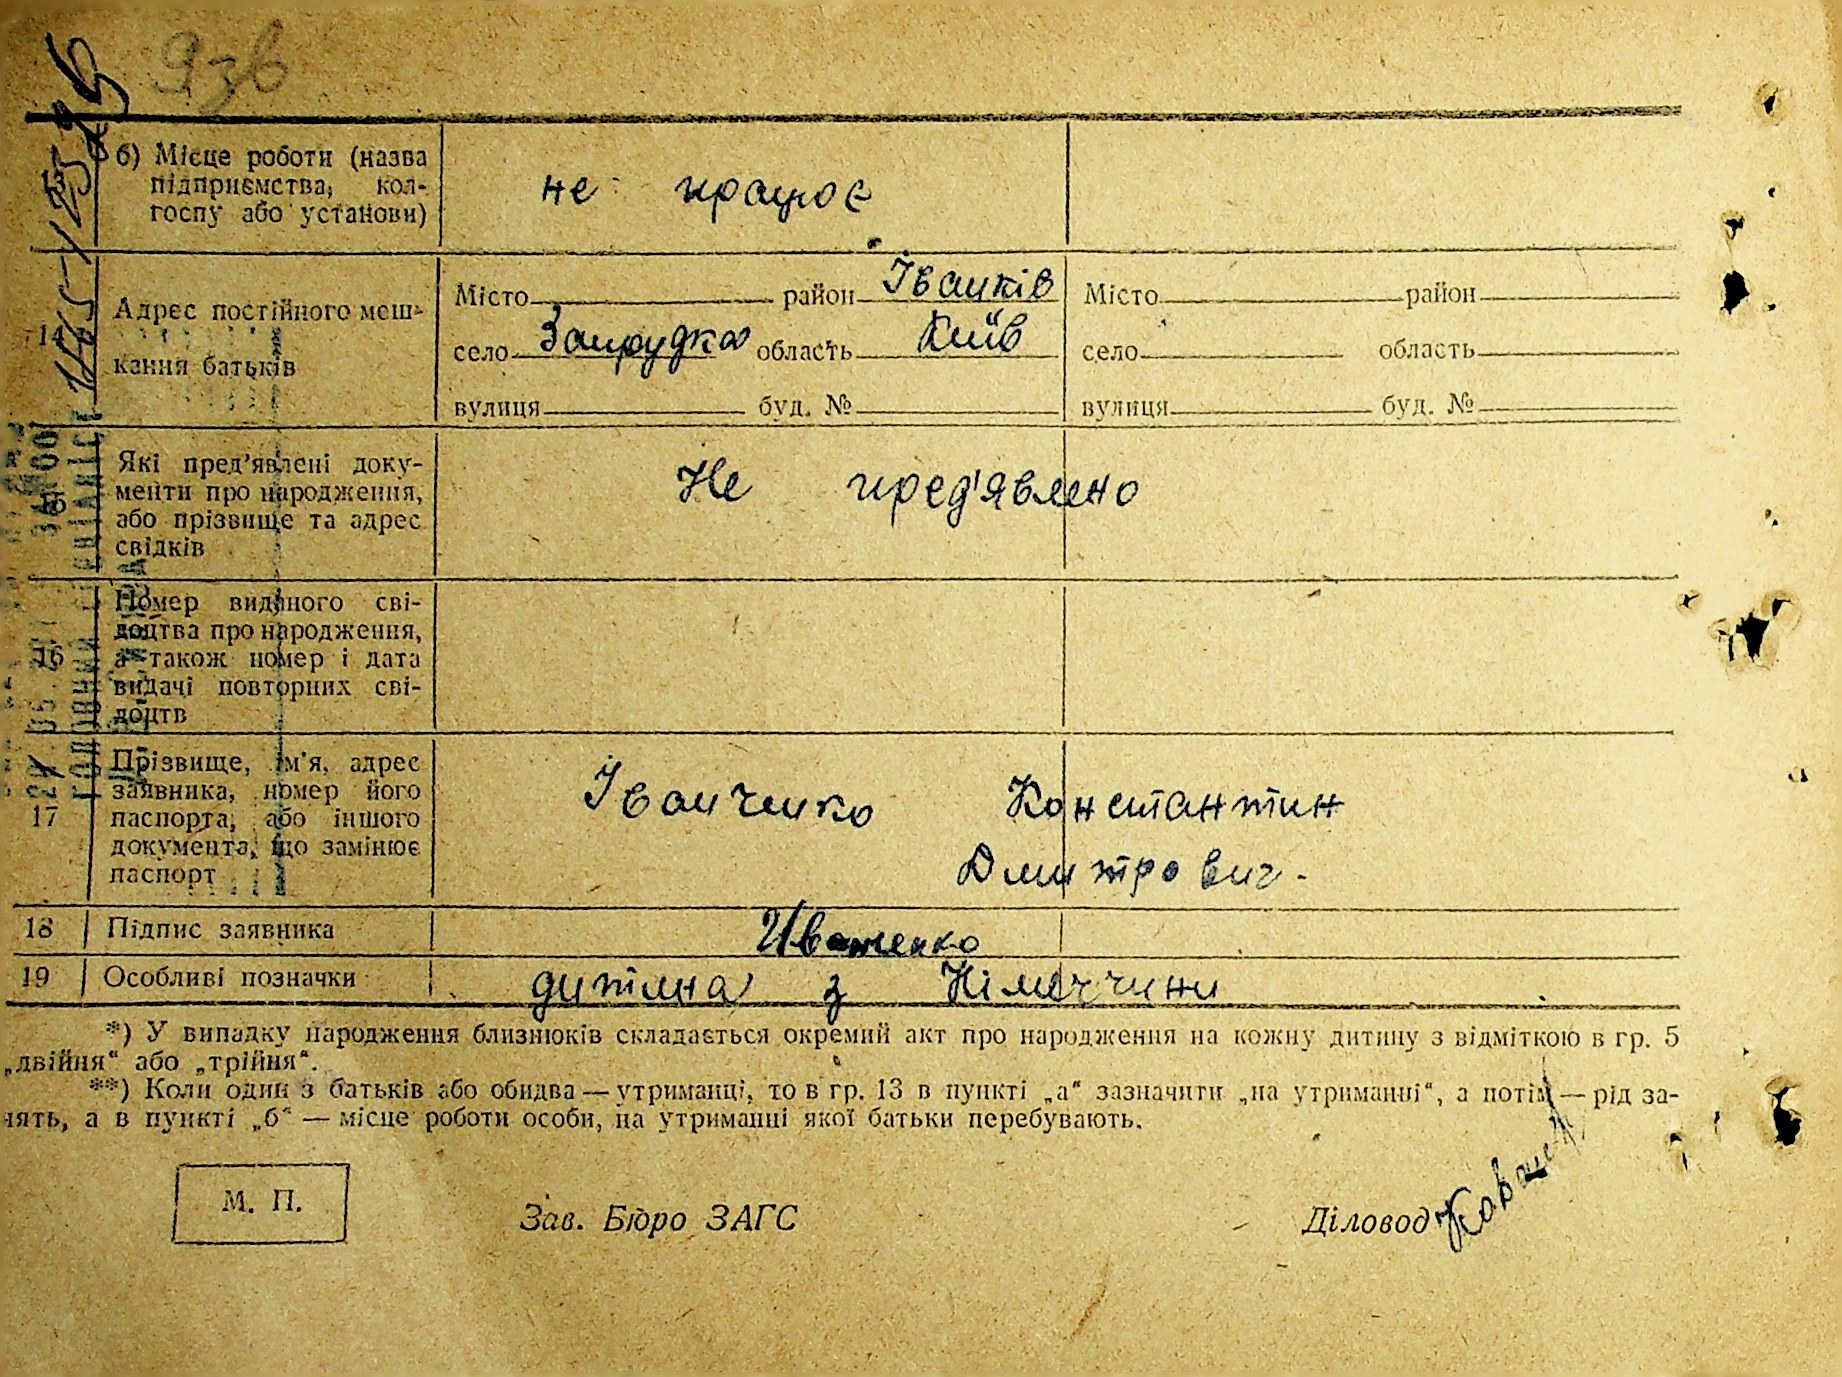 б) Місце роботи (назва
підприємства, кол-
госпу або установи)
не працює
14
Адрес постійного меш-
кання батьків
Місто район Іванків
село Запрудка область Київ
вулиця буд. №
Місто район
село область
вулиця буд. №
15
Які пред'явлені доку-
менти про народження,
або прізвище та адрес
свідків
Не пред'явлено
16
Номер виданого сві-
доцтва про народження,
а також номер і дата
видачі повторних сві-
доцтв
17
Прізвище, ім'я, адрес
заявника, номер його
паспорта, або іншого
документа, що замінює
паспорт
Іванченко Константин
Дмитрович.
18 Підпис заявника
19 Особливі позначки дитина з Німеччини
*) У випадку народження близнюків складається окремий акт про народження на кожну дитину з відміткою в гр. 5
„двійня“ або „трійня“.
**) Коли один з батьків або обидва — утриманці, то в гр. 13 в пункті „а“ зазначити „на утриманні“, а потім — рід за-
нять, а в пункті „б“ — місце роботи особи, на утриманні якої батьки перебувають.
М. П.
Зав. Бюро ЗАГС
Діловод